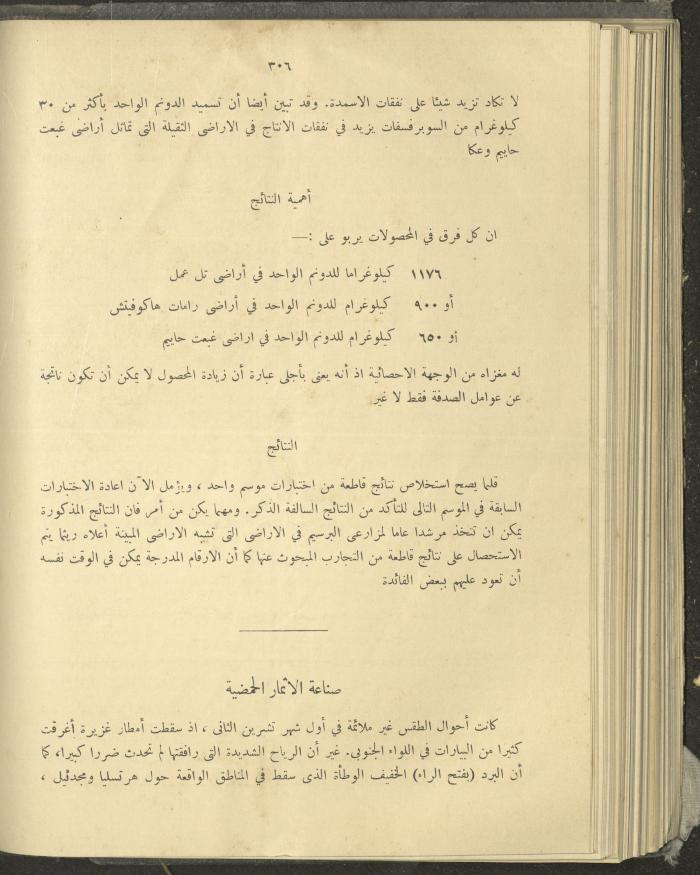 ٣٠٦
لا تكاد تزيد شيئا على نفقات الاسمدة. وقد تبين أيضا أن تسميد الدونم الواحد بأكثر من ٣٠
كيلوغرام من السوبرفسفات يزيد في نفقات الانتاج في الاراضى الثقيلة التى تماثل أراضى غبعت
حاييم وعكا
أهمية النتائج
ان كل فرق في المحصولات يربو على :—
١١٧٦ كيلوغراما للدونم الواحد في أراضى تل عمل
أو ٩٠٠ كيلوغرام للدونم الواحد في أراضى رامات هاكوفيتش
أو ٦٥٠ كيلوغرام للدونم الواحد في اراضى غبعت حاييم
له مغزاه من الوجهة الاحصائية اذ أنه يعنى بأجلى عبارة أن زيادة المحصول لا يمكن أن تكون ناتجة
عن عوامل الصدفة فقط لا غير
النتائج
قلما يصح استخلاص نتائج قاطعة من اختبارات موسم واحد ، ويؤمل الآن اعادة الاختبارات
السابقة في الموسم التالى للتأكد من النتائج السالفة الذكر. ومهما يكن من أمر فان النتائج المذكورة
يمكن ان تتخذ مرشدا عاما لمزارعى البرسيم في الاراضى التى تشبه الاراضى المبينة أعلاه ريثما يتم
الاستحصال على نتائج قاطعة من التجارب المبحوث عنها كما أن الارقام المدرجة يمكن في الوقت نفسه
أن تعود عليهم ببعض الفائدة
صناعة الاثمار الحمضية
كانت أحوال الطقس غير ملائمة في أول شهر تشرين الثانى ، اذ سقطت أمطار غزيرة أغرقت
كثيرا من البيارات في اللواء الجنوبى. غير أن الرياح الشديدة التى رافقتها لم تحدث ضررا كبيرا، كما
أن البرد (بفتح الراء) الخفيف الوطأة الذى سقط في المناطق الواقعة حول هرتسليا ومجدئيل ،